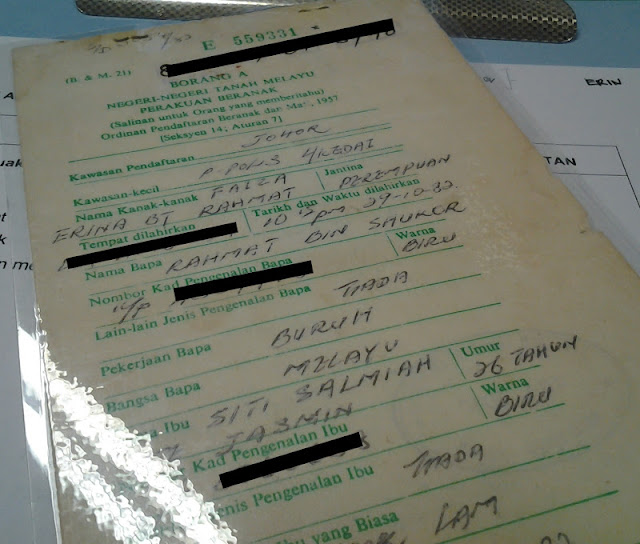 E 559331
(B. & M. 21)
BORANG A
NEGERI-NEGERI TANAH MELAYU
PERAKUAN BERANAK
(Salinan untuk Orang yang memberitahu)
Ordinan Pendaftaran Beranak dan Mati, 1957
[Seksyen 14; Aturan 7]
JOHOR
Kawasan Pendaftaran
Kawasan-kecil
Nama Kanak-kanak FAIZA
Jantina
ERINA BT RAHMAT
PEREMPUAN
Tempat dilahirkan
Tarikh dan Waktu dilahirkan
29-10-82
Nama Bapa RAHMAT BIN
Warna
Nombor Kad Pengenalan Bapa
BIRU
Lain-lain Jenis Pengenalan Bapa TIADA
Pekerjaan Bapa BURUH
Bangsa Bapa MELAYU
Ibu SITI SALMIAH
Umur
26 TAHUN
JASMIN
Warna
Kad Pengenalan Ibu
BIRU
Jenis Pengenalan Ibu TIADA
Ibu yang Biasa
LAM
ERIN
TAN